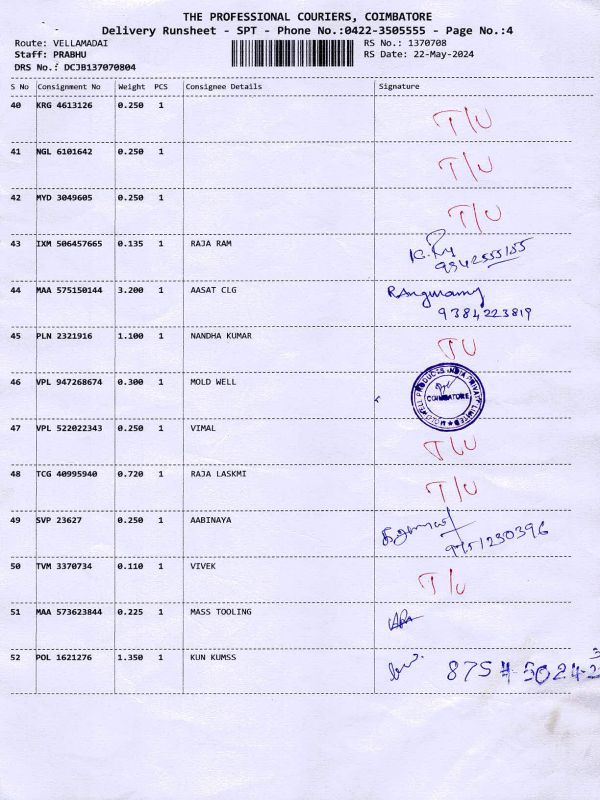 THE PROFESSIONAL COURIERS, COIMBATORE
Delivery Runsheet - SPT - Phone No.:0422-3505555 - Page No.:4
Route: VELLAMADAI RS No.: 1370708
Staff: PRABHU RS Date: 22-May-2024
DRS No.: DCJB137070804
S No Consignment No Weight PCS Consignee Details Signature
40 KRG 4613126 0.250 1 T/U
41 NGL 6101642 0.250 1 T/U
42 MYD 3049605 0.250 1 T/U
43 IXM 506457665 0.135 1 RAJA RAM
44 MAA 575150144 3.200 1 AASAT CLG
9384223819
45 PLN 2321916 1.100 1 NANDHA KUMAR TU
46 VPL 947268674 0.300 1 MOLD WELL COIMBATORE
47 VPL 522022343 0.250 1 VIMAL T/U
48 TCG 40995940 0.720 1 RAJA LASKMI T/U
49 SVP 23627 0.250 1 AABINAYA
50 TVM 3370734 0.110 1 VIVEK T/U
51 MAA 573623844 0.225 1 MASS TOOLING
52 POL 1621276 1.350 1 KUN KUMSS